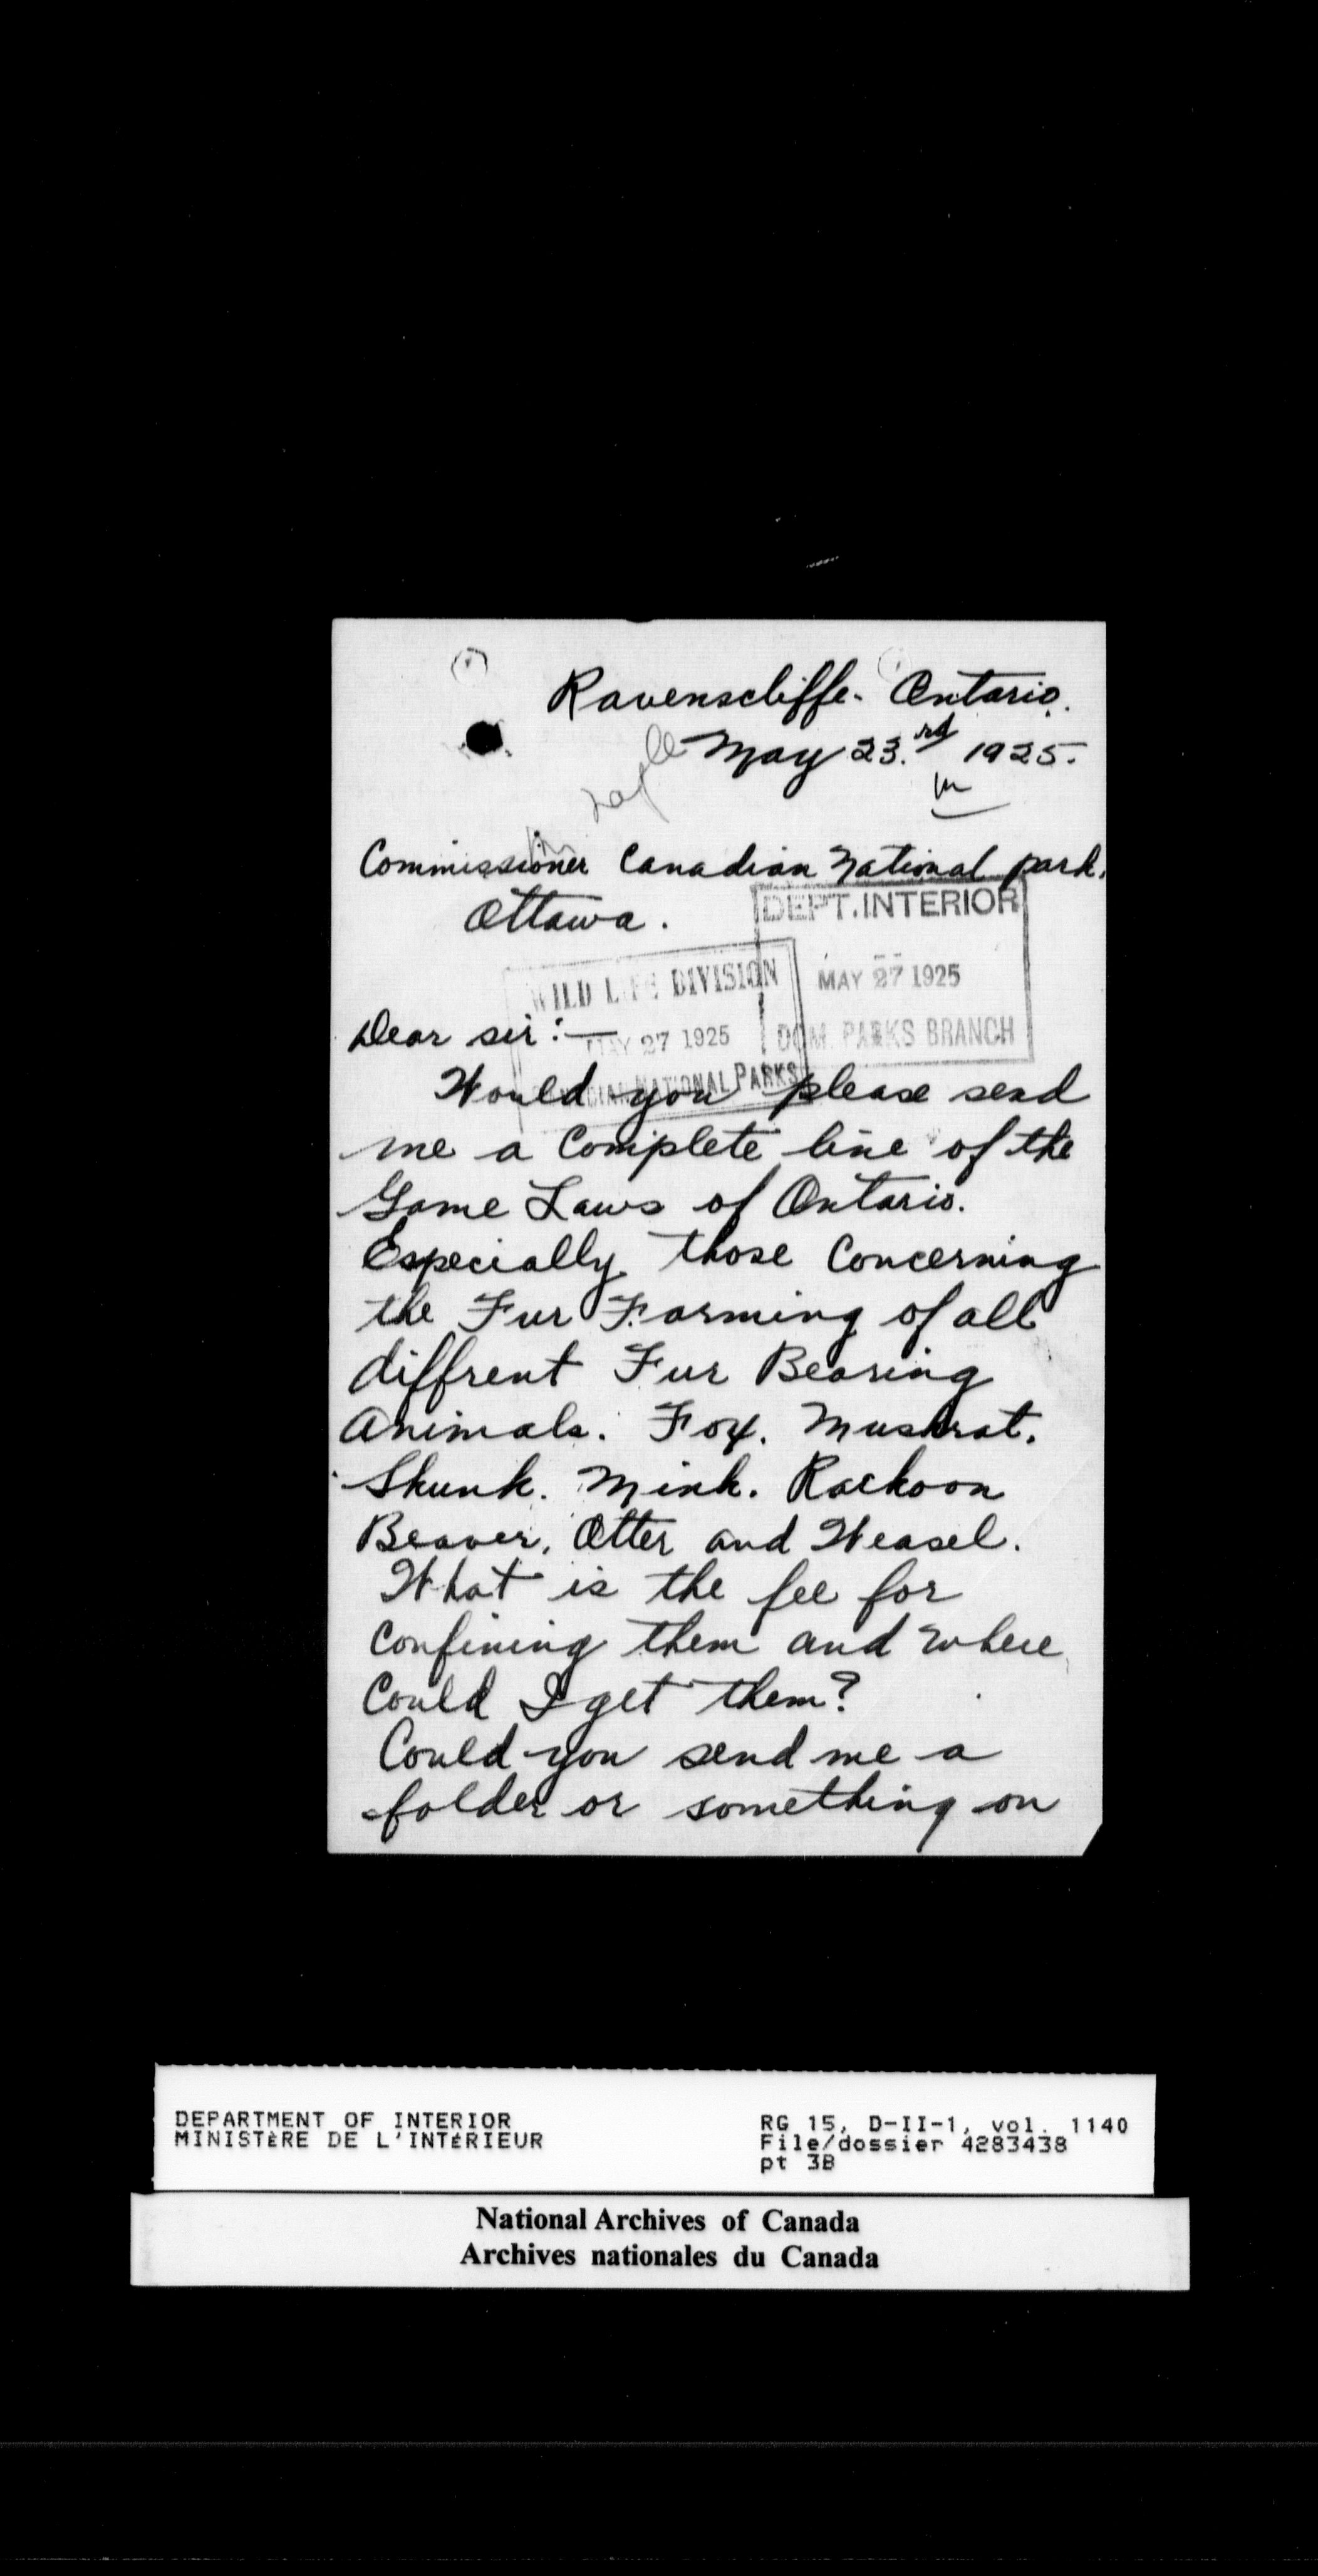 Ravenscliffe. Ontario.
May 23.rd 1925.
Commissioner Canadian National park.
Ottawa.
DEPT. INTERIOR
MAY 27 1925
DOM. PARKS BRANCH
WILD LIFE DIVISION
MAY 27 1925
NATIONAL PARKS
Dear sir:—
Would you please send
me a Complete line of the
Game Laws of Ontario.
Especially those Concerning
the Fur Farming of all
diffrent Fur Bearing
Animals. Fox. Muskrat.
Skunk. Mink. Rackoon
Beaver, Otter and Weasel.
What is the fee for
Confining them and where
Could I get them?
Could you send me a
folder or something on
DEPARTMENT OF INTERIOR
MINISTÈRE DE L'INTÉRIEUR
RG 15, D-II-1, vol. 1140
File/dossier 4283438
pt 3B
National Archives of Canada
Archives nationales du Canada